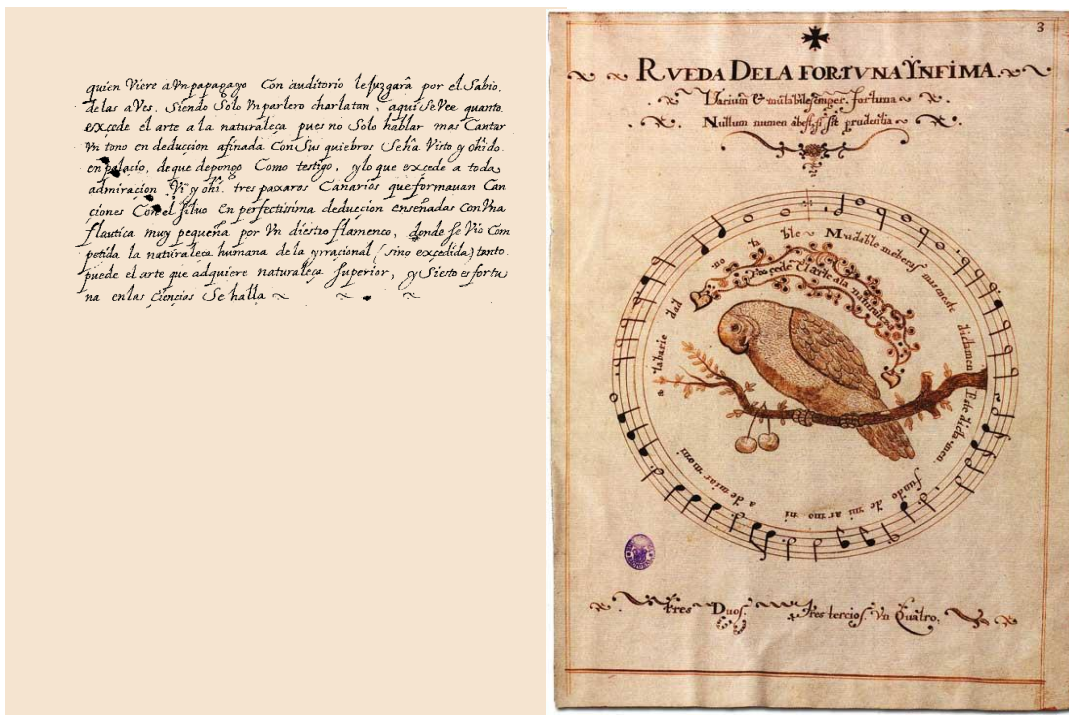 quien Viere a Vn papagayo Con auditorio le juzgarà por el Sabio.
de las aVes. Siendo Solo Vn parlero charlatan, aqui Se Vee quanto.
excede el arte a la naturaleça pues no Solo hablar mas Cantar
Vn tono en deduccion afinada Con Sus quiebros Se hà Visto y ohido.
en palacio, de que depongo Como testigo, y lo que excede a toda
admiracion Vi y ohi. tres paxaros Canarios que formauan Can
ciones Con el siluo En perfectissima deduccion enseñadas Con Vna
flautica muy pequeña por Vn diestro flamenco, donde se Vio Com
petida la naturaleça humana de la yrracional (sino excedida) tanto.
puede el arte que adquiere naturaleça Superior, y Si esto es fortu
na en las Ciencias Se halla
3
RVEDA DE LA FORTVNA YNFIMA.
Varium & mutabile semper fortuna
Nullum numen abest, si sit prudentia
Mudable mereces
dictamen Este dictamen.
fundo de mi armoni
a de mi armoni
a labarie dad
no ta ble
excede el arte a la naturaleza
tres Duos. tres tercios. Vn Quatro.